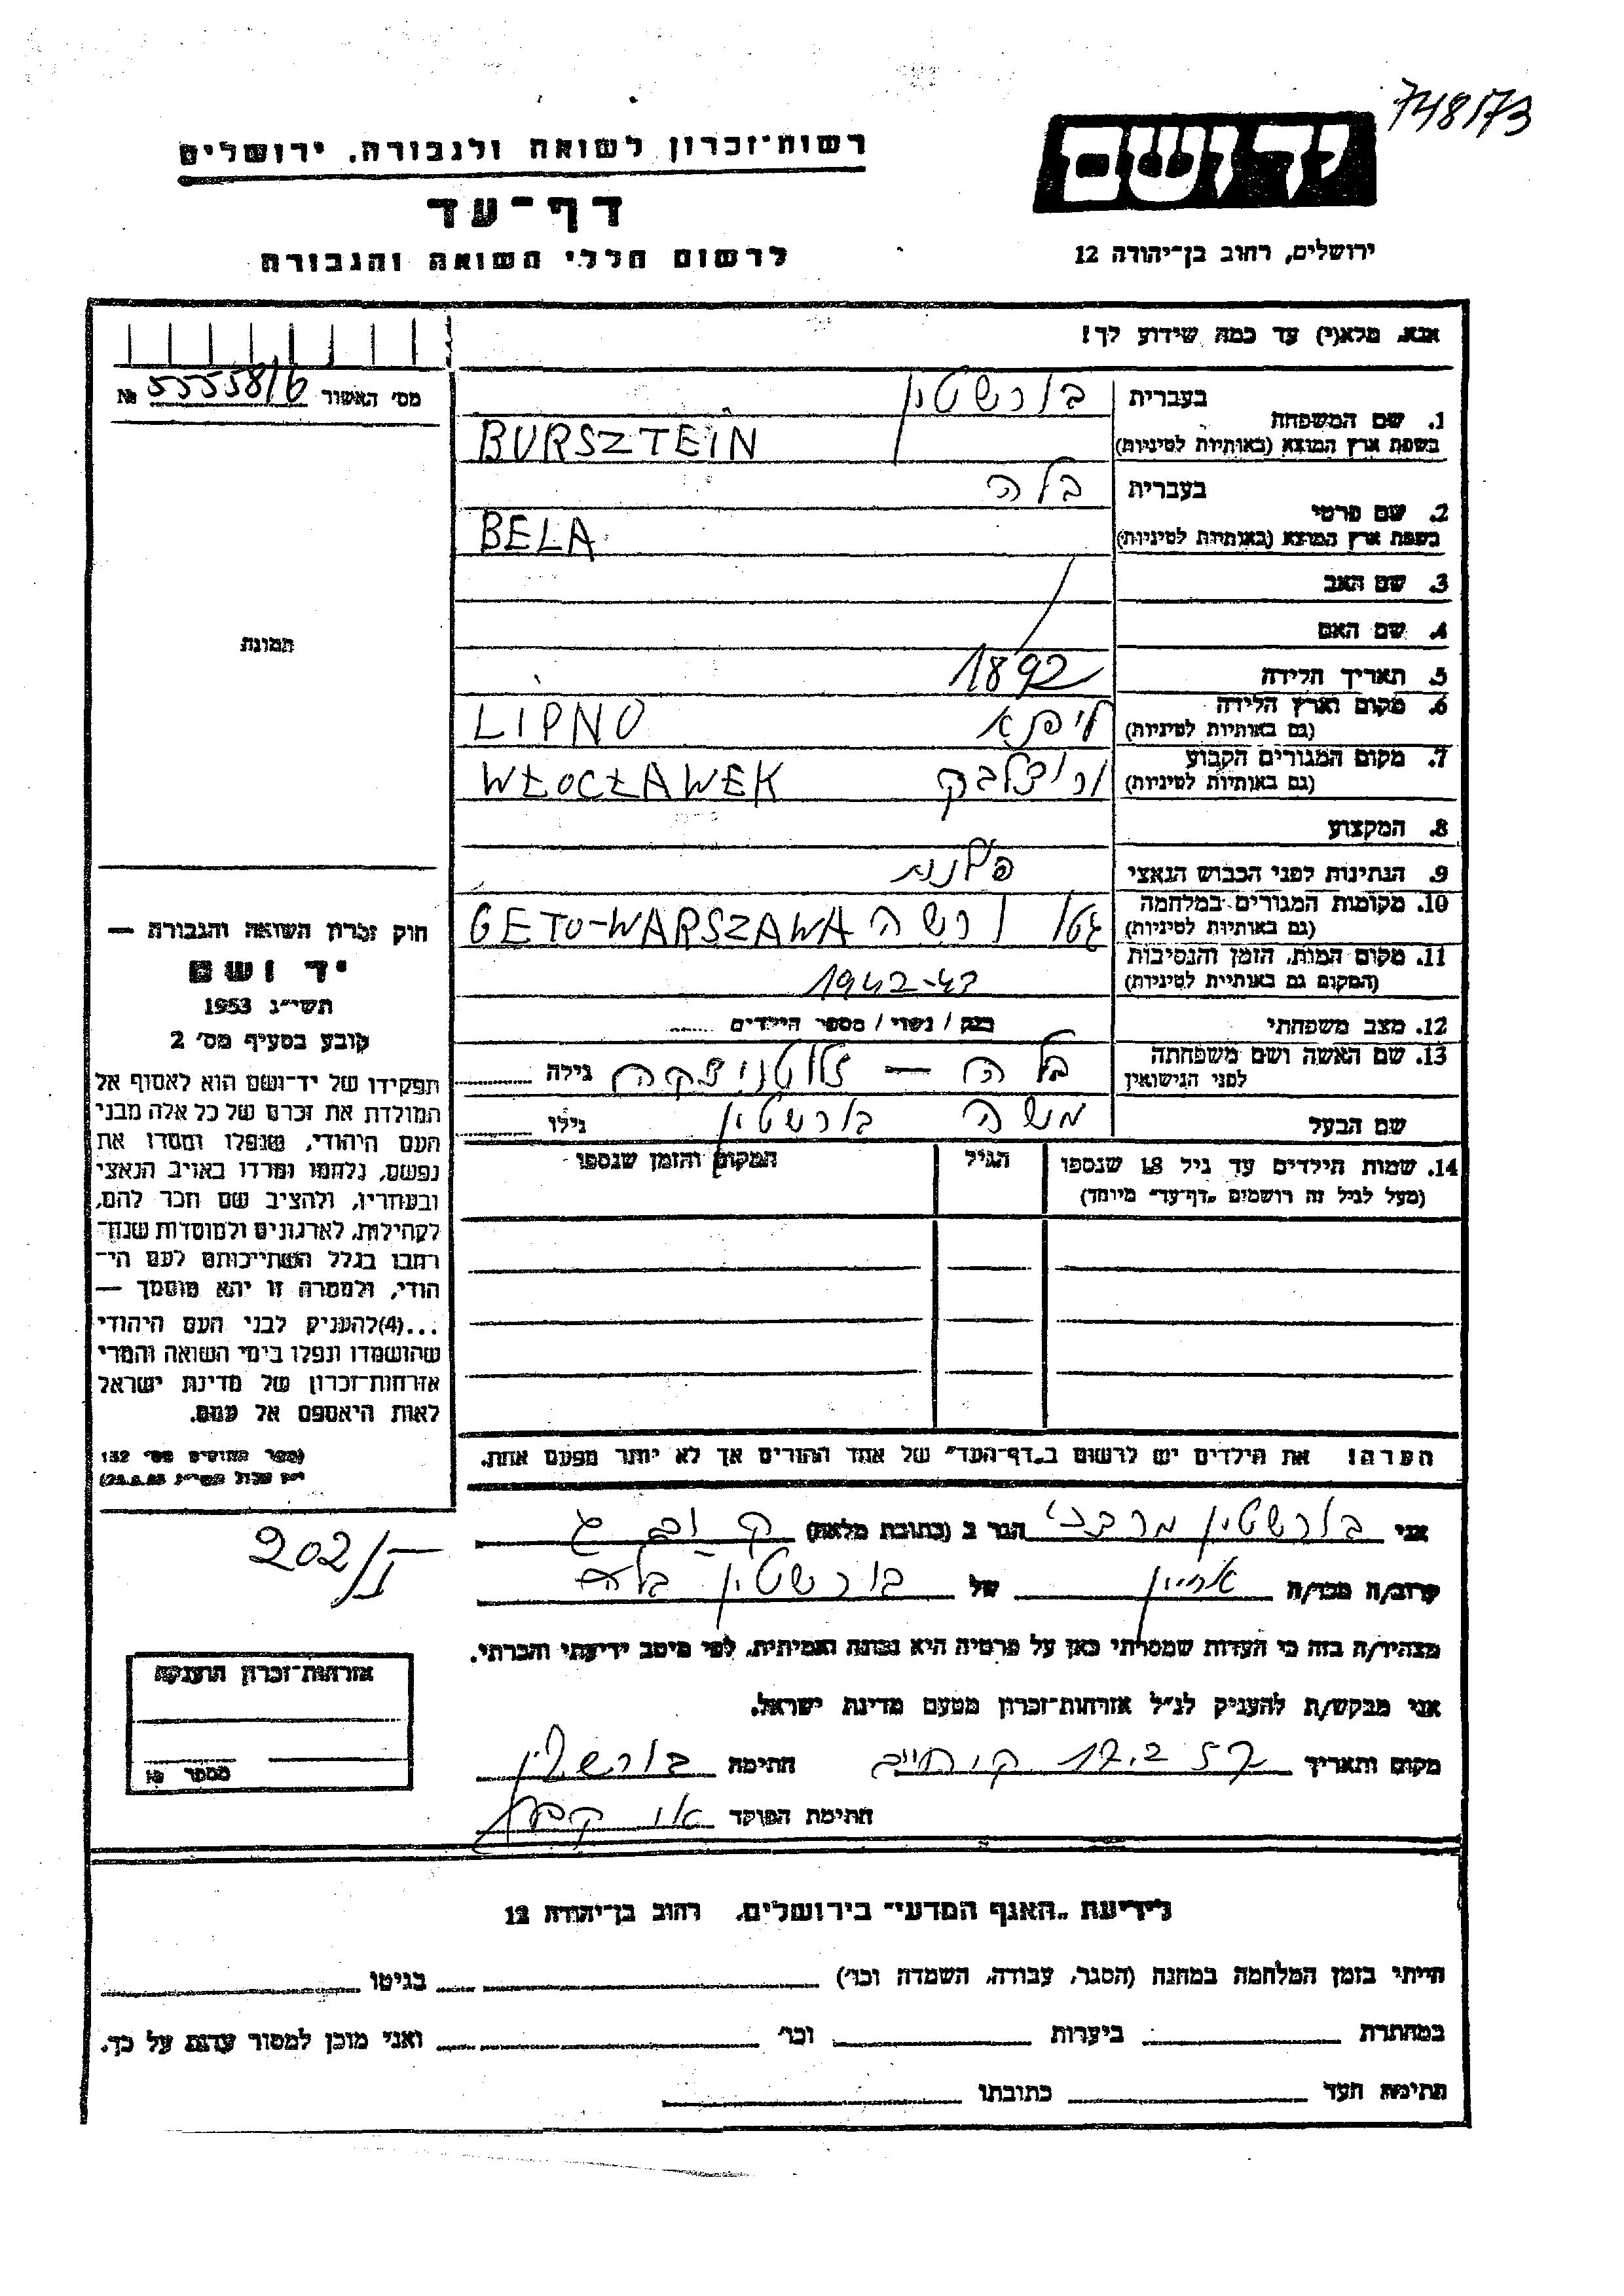 748/73
רשות-זכרון לשואה ולגבורה, ירושלים
יד ושם
דף-עד
לרשום חללי השואה והגבורה
ירושלים, רחוב בן-יהודה 12
אנא, מלא(י) עד כמה שידוע לך!
מס' האשור № 55558/6
1. שם המשפחה
בעברית בורשטין
בשפת ארץ המוצא (באותיות לטיניות) BURSZTEIN
2. שם פרטי
בעברית בלה
בשפת ארץ המוצא (באותיות לטיניות) BELA
3. שם האב
4. שם האם
תמונה
5. תאריך הלידה 1892
6. מקום וארץ הלידה
(גם באותיות לטיניות) ליפנא LIPNO
7. מקום המגורים הקבוע
(גם באותיות לטיניות) WŁOCŁAWEK
8. המקצוע
9. הנתינות לפני הכבוש הנאצי
10. מקומות המגורים במלחמה
(גם באותיות לטיניות) גטו ורשה GETO-WARSZAWA
11. מקום המות, הזמן והנסיבות
(המקום גם באותיות לטיניות) 1942-43
12. מצב משפחתי רווק / נשוי / מספר הילדים ......
13. שם האשה ושם משפחתה
לפני הנישואין בלה — זלוטניצקה גילה
שם הבעל משה בורשטין גילו
14. שמות הילדים עד גיל 18 שנספו הגיל המקום והזמן שנספו
(מעל לגיל זה רושמים „דף-עד" מיוחד)
חוק זכרון השואה והגבורה —
יד ושם
תשי"ג 1953
קובע בסעיף מס' 2
תפקידו של יד-ושם הוא לאסוף אל
המולדת את זכרם של כל אלה מבני
העם היהודי, שנפלו ומסרו את
נפשם, נלחמו ומרדו באויב הנאצי
ובעוזריו, ולהציב שם וזכר להם,
לקהילות, לארגונים ולמוסדות שנח-
רבו בגלל השתייכותם לעם הי-
הודי, ולמטרה זו יהא מוסמך —
...(4)להעניק לבני העם היהודי
שהושמדו ונפלו בימי השואה והמרי
אזרחות-זכרון של מדינת ישראל
לאות היאספם אל עמם.
(ספר החוקים מס' 132
הערה! את הילדים יש לרשום ב„דף-העד" של אחד ההורים אך לא יותר מפעם אחת.
אני בורשטין מרדכי הגר ב (כתובת מלאה)
קרוב/ה מכר/ה של בורשטין בלה
202/
מצהיר/ה בזה כי העדות שמסרתי כאן על פרטיה היא נכונה ואמיתית, לפי מיטב ידיעתי והכרתי.
אני מבקש/ת להעניק לנ"ל אזרחות-זכרון מטעם מדינת ישראל.
אזרחות-זכרון הוענקה
מספר №
מקום ותאריך 17.2.57 חתימה בורשטין
חתימת הפוקד
לידיעת „האגף המדעי" בירושלים, רחוב בן-יהודה 12
הייתי בזמן המלחמה במחנה (הסגר, עבודה, השמדה וכו') בגיטו
במחתרת ביערות וכו' ואני מוכן למסור עדות על כך.
חתימת העד כתובתו